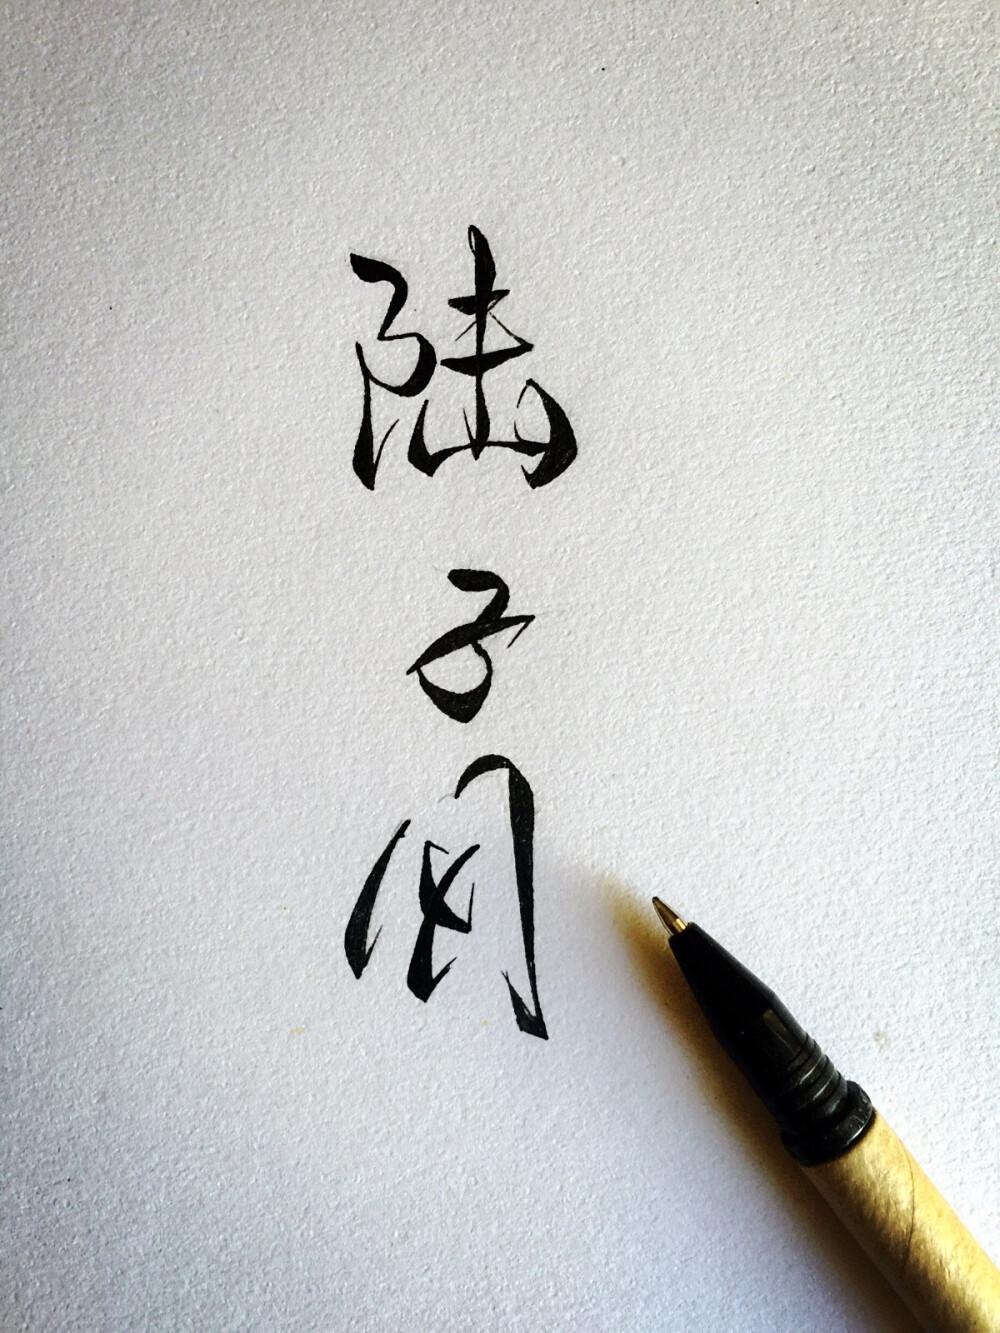 陆
子
冈